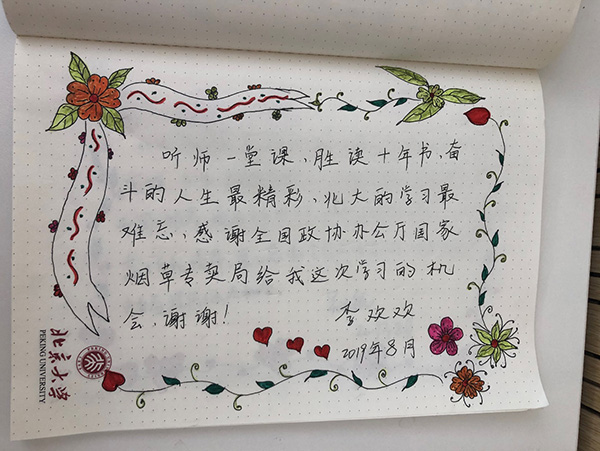 听师一堂课，胜读十年书，奋
斗的人生最精彩，北大的学习最
难忘，感谢全国政协办公厅国家
烟草专卖局给我这次学习的机
会，谢谢！
李欢欢
2019年8月
北京大学
PEKING UNIVERSITY